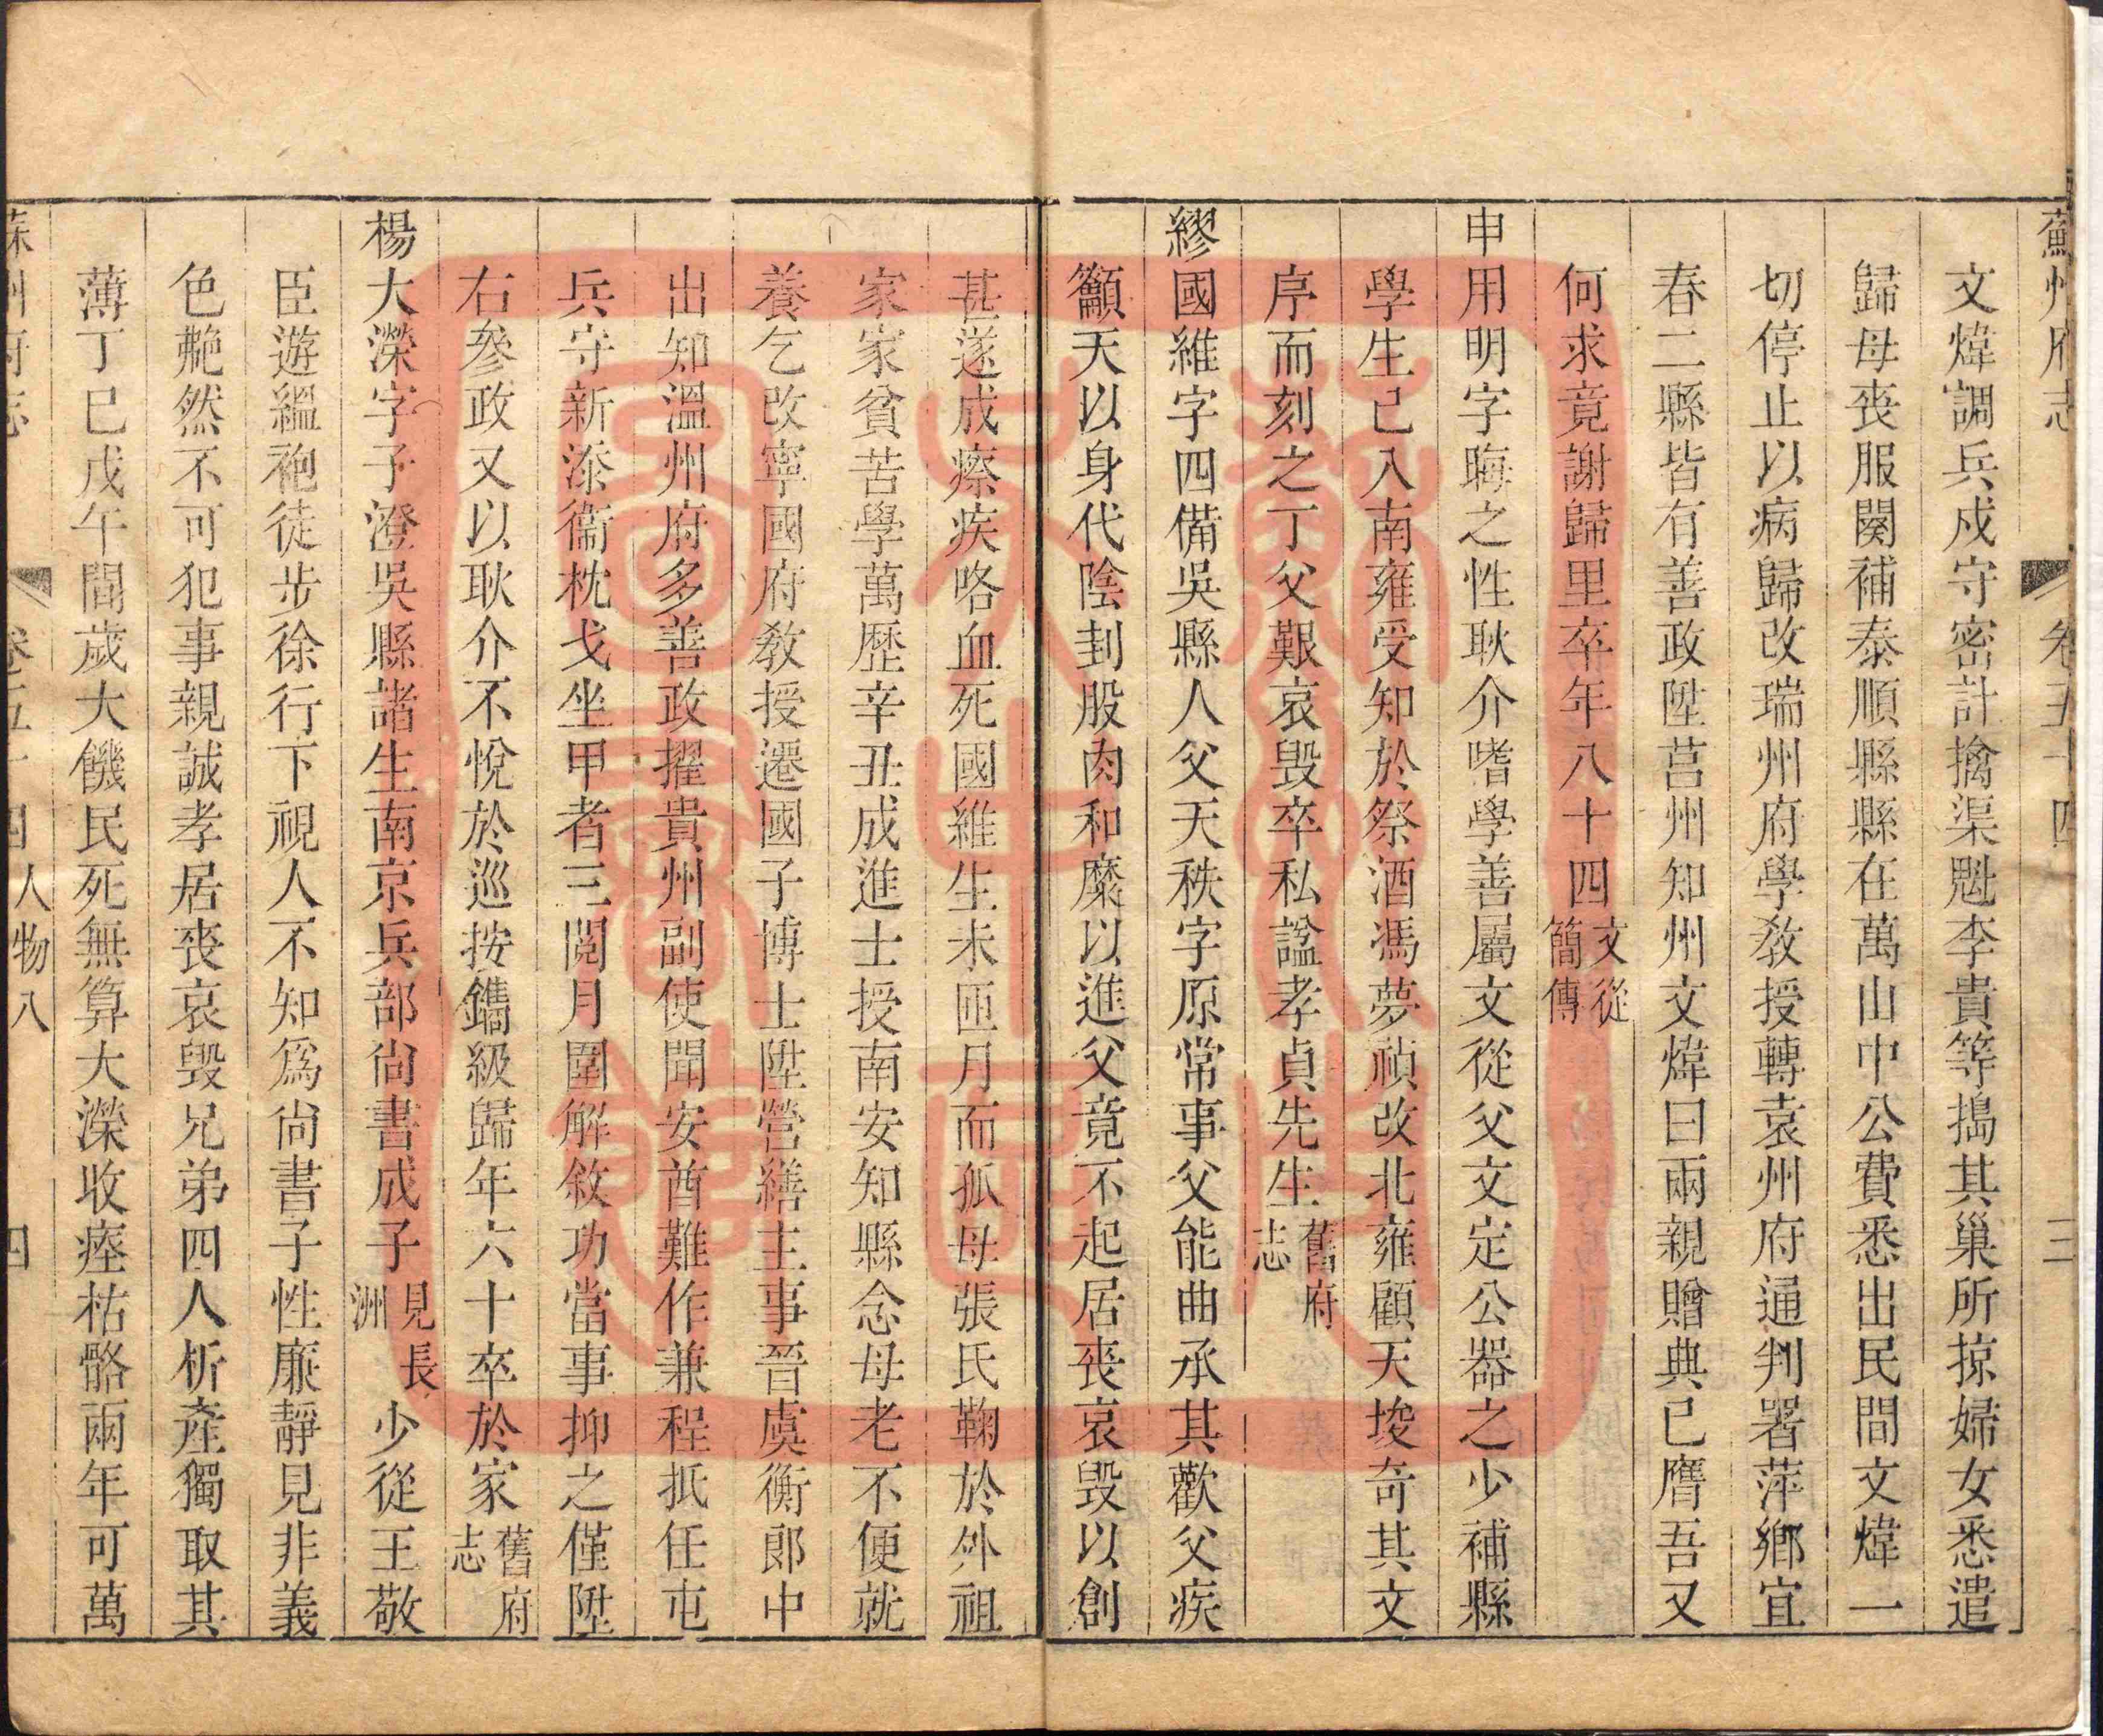 蘇州府志 卷五十四 三
文煒調兵戍守密計擒渠魁李貴等搗其巢所掠婦女悉遣
歸母喪服闋補泰順縣縣在萬山中公費悉出民間文煒一
切停止以病歸改瑞州府學敎授轉袁州府通判署萍鄉宜
春二縣皆有善政陞莒州知州文煒曰兩親贈典已膺吾又
何求竟謝歸里卒年八十四文從簡傳
申用明字晦之性耿介嗜學善屬文從父文定公器之少補縣
學生已入南雍受知於祭酒馮夢禎改北雍顧天埈奇其文
序而刻之丁父艱哀毀卒私諡孝貞先生舊府志
繆國維字四備吳縣人父天秩字原常事父能曲承其歡父疾
籲天以身代陰刲股肉和糜以進父竟不起居喪哀毀以創
甚遂成瘵疾咯血死國維生未匝月而孤母張氏鞠於外祖
家家貧苦學萬歷辛丑成進士授南安知縣念母老不便就
養乞改寧國府敎授遷國子博士陞營繕主事晉虞衡郎中
出知溫州府多善政擢貴州副使聞安酋難作兼程抵任屯
兵守新添衞枕戈坐甲者三閱月圍解敘功當事抑之僅陞
右參政又以耿介不悅於巡按鐫級歸年六十卒於家舊府志
楊大濚字子澄吳縣諸生南京兵部尚書成子見長洲少從王敬
臣遊縕袍徒步徐行下視人不知爲尚書子性廉靜見非義
色艴然不可犯事親誠孝居喪哀毀兄弟四人析產獨取其
薄丁巳戊午間歲大饑民死無算大濚收瘞枯骼兩年可萬
蘇州府志 卷五十四 人物八 四